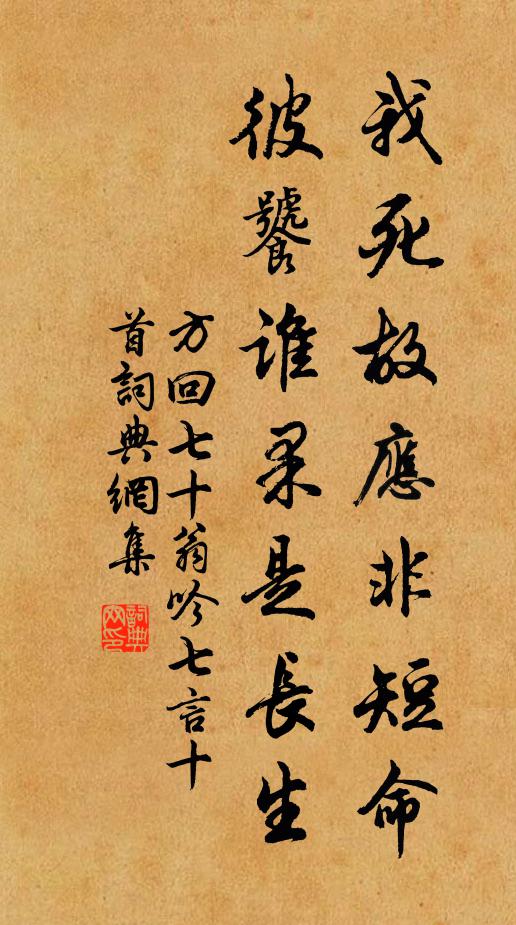 我死故應非短命
彼饕誰果是長生
方回七十翁吟七言十
首詞典網集
詞典網印